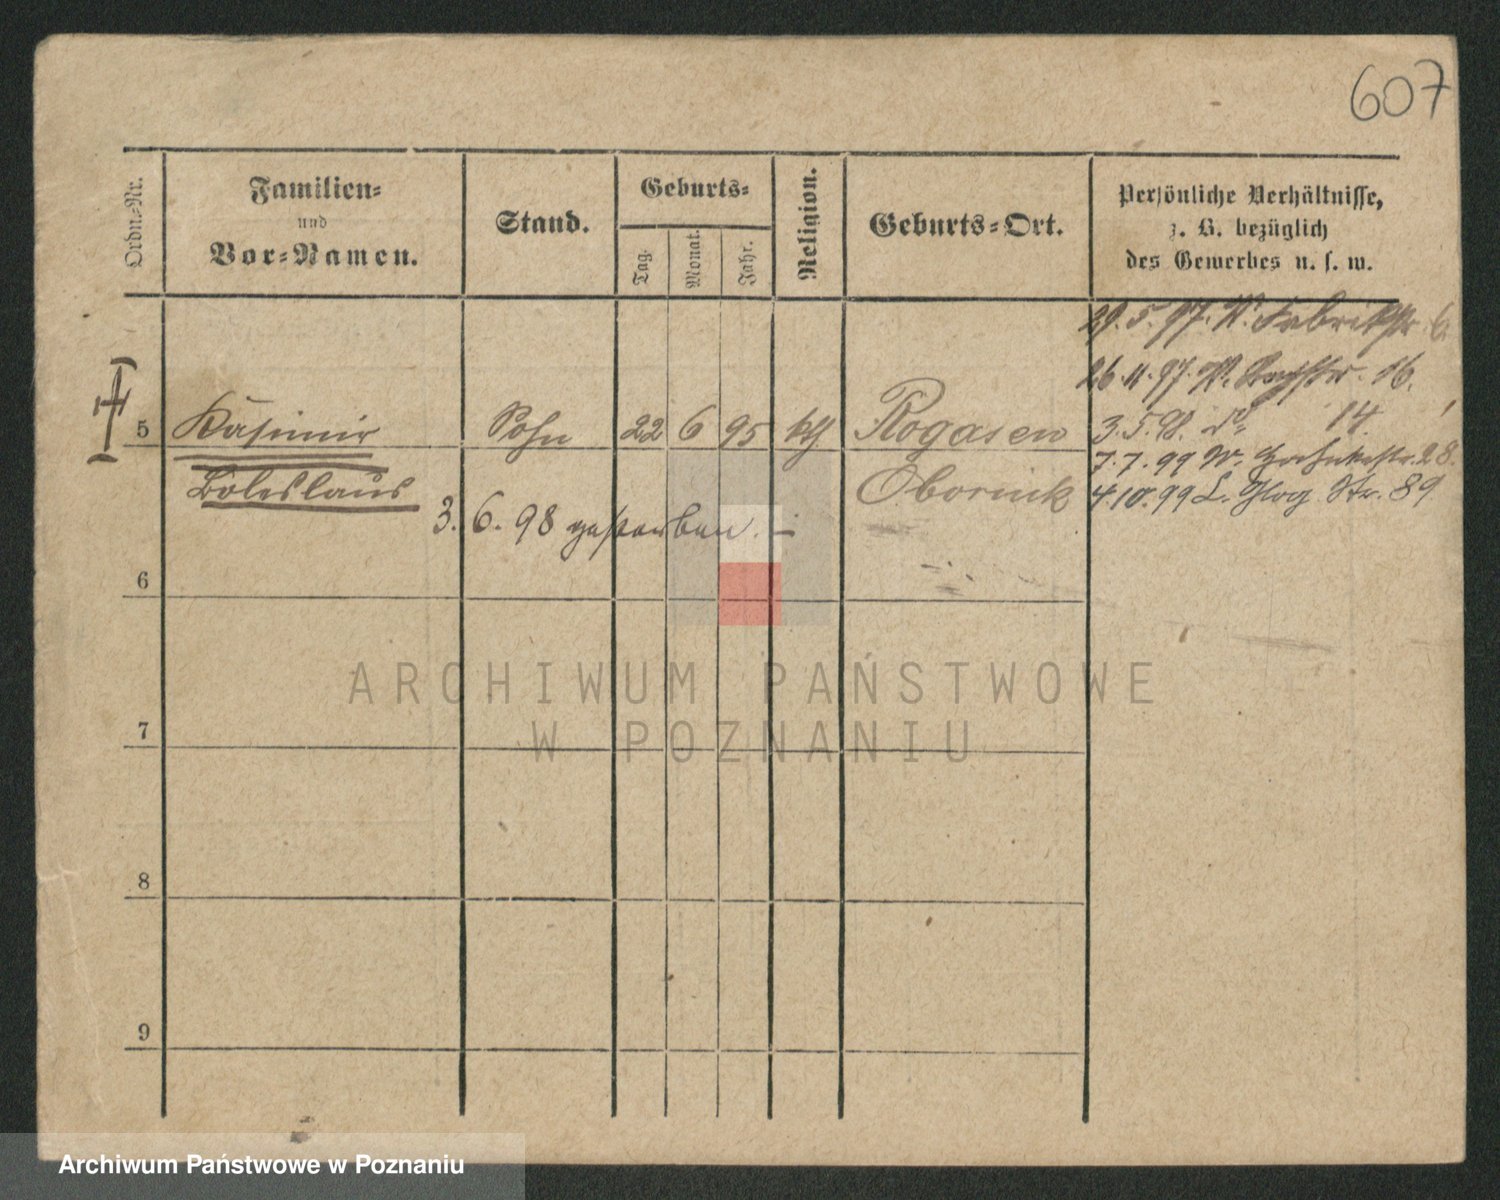 607
Ordn.-Nr.
Familien-
und
Vor-Namen.
Stand.
Geburts-
Tag.
Monat.
Jahr.
Religion.
Geburts-Ort.
Persönliche Verhältnisse,
z. B. bezüglich
des Gewerbes u. s. w.
29.5.97. W. Fabrikstr. 6.
26.11.97. W. 16.
5 Kasimir Sohn 22 6 95 kth Rogasen 3.5.98. do 14
Boleslaus Obornik 7.7.99 W. 28.
4.10.99 L. Glog. Str. 89
3. 6. 98 gestorben. –
6
7
8
9
ARCHIWUM PAŃSTWOWE
W POZNANIU
Archiwum Państwowe w Poznaniu